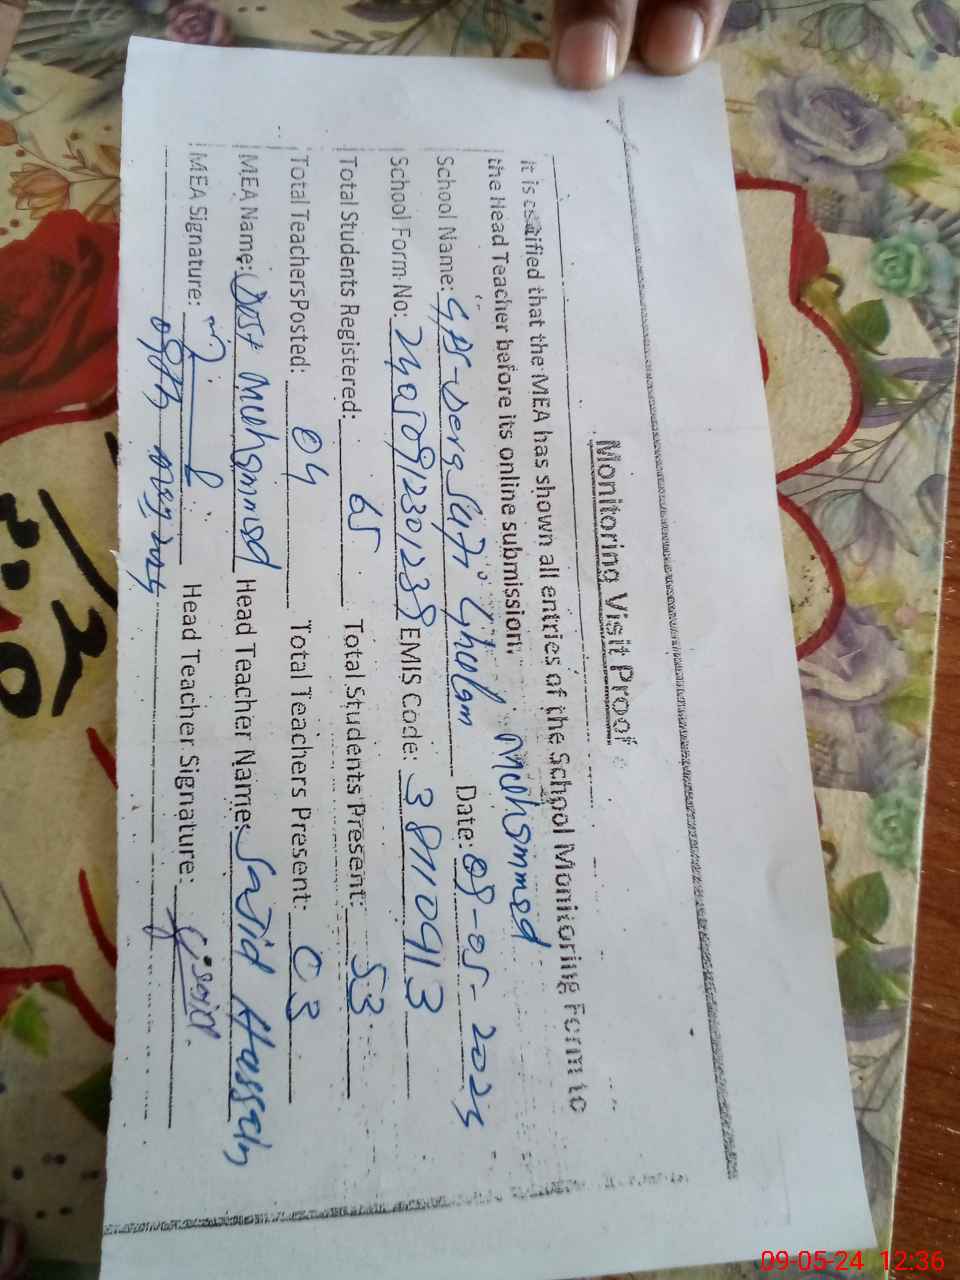 Monitoring Visit Proof
it is certified that the MEA has shown all entries of the School Monitoring Form to
the Head Teacher before its online submission.
Muhammad
School Name: GPS-Dera Sufi Ghulam Date: 08-05-2024
School Form No: EMIS Code: 38110913
Total Students Registered: 65 Total Students Present: 53
Total Teachers Posted: 04 Total Teachers Present: 03
MEA Name: Dost Muhammad Head Teacher Name: Sajid Hassain
MEA Signature: Head Teacher Signature: Sajid
09-05-24 12:36